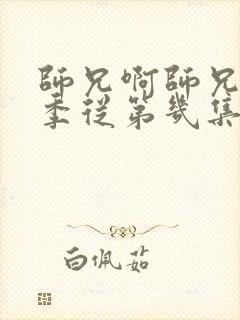 師兄啊師兄
季從第幾集
白佩茹